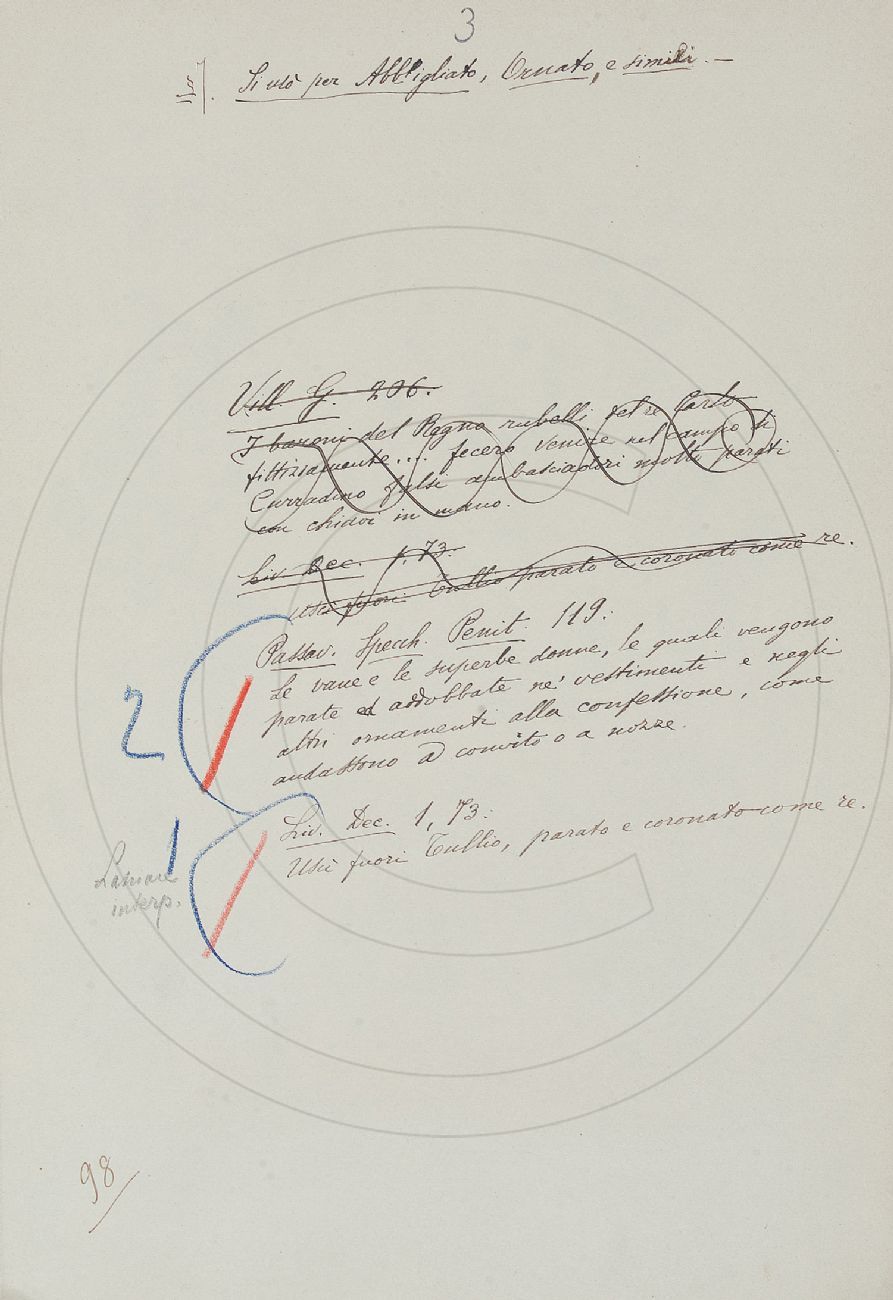 3
Si usò per Abbigliato, Ornato, e simili. —
Vill. G. 206.
I baroni del Regno rubelli del re Carlo
fittiziamente.... fecero venire nel campo di
Curradino falsi ambasciadori molto parati
con chiavi in mano.
Liv. Dec. 1, 73.
Uscì fuori Tullio parato e coronato come re.
Passav. Specch. Penit. 119:
Le vane e le superbe donne, le quali vengono
parate ed addobbate ne' vestimenti e negli
altri ornamenti alla confessione, come
andassono a convito o a nozze.
2
Liv. Dec. 1, 73:
Uscì fuori Tullio, parato e coronato come re.
1
interp.
98